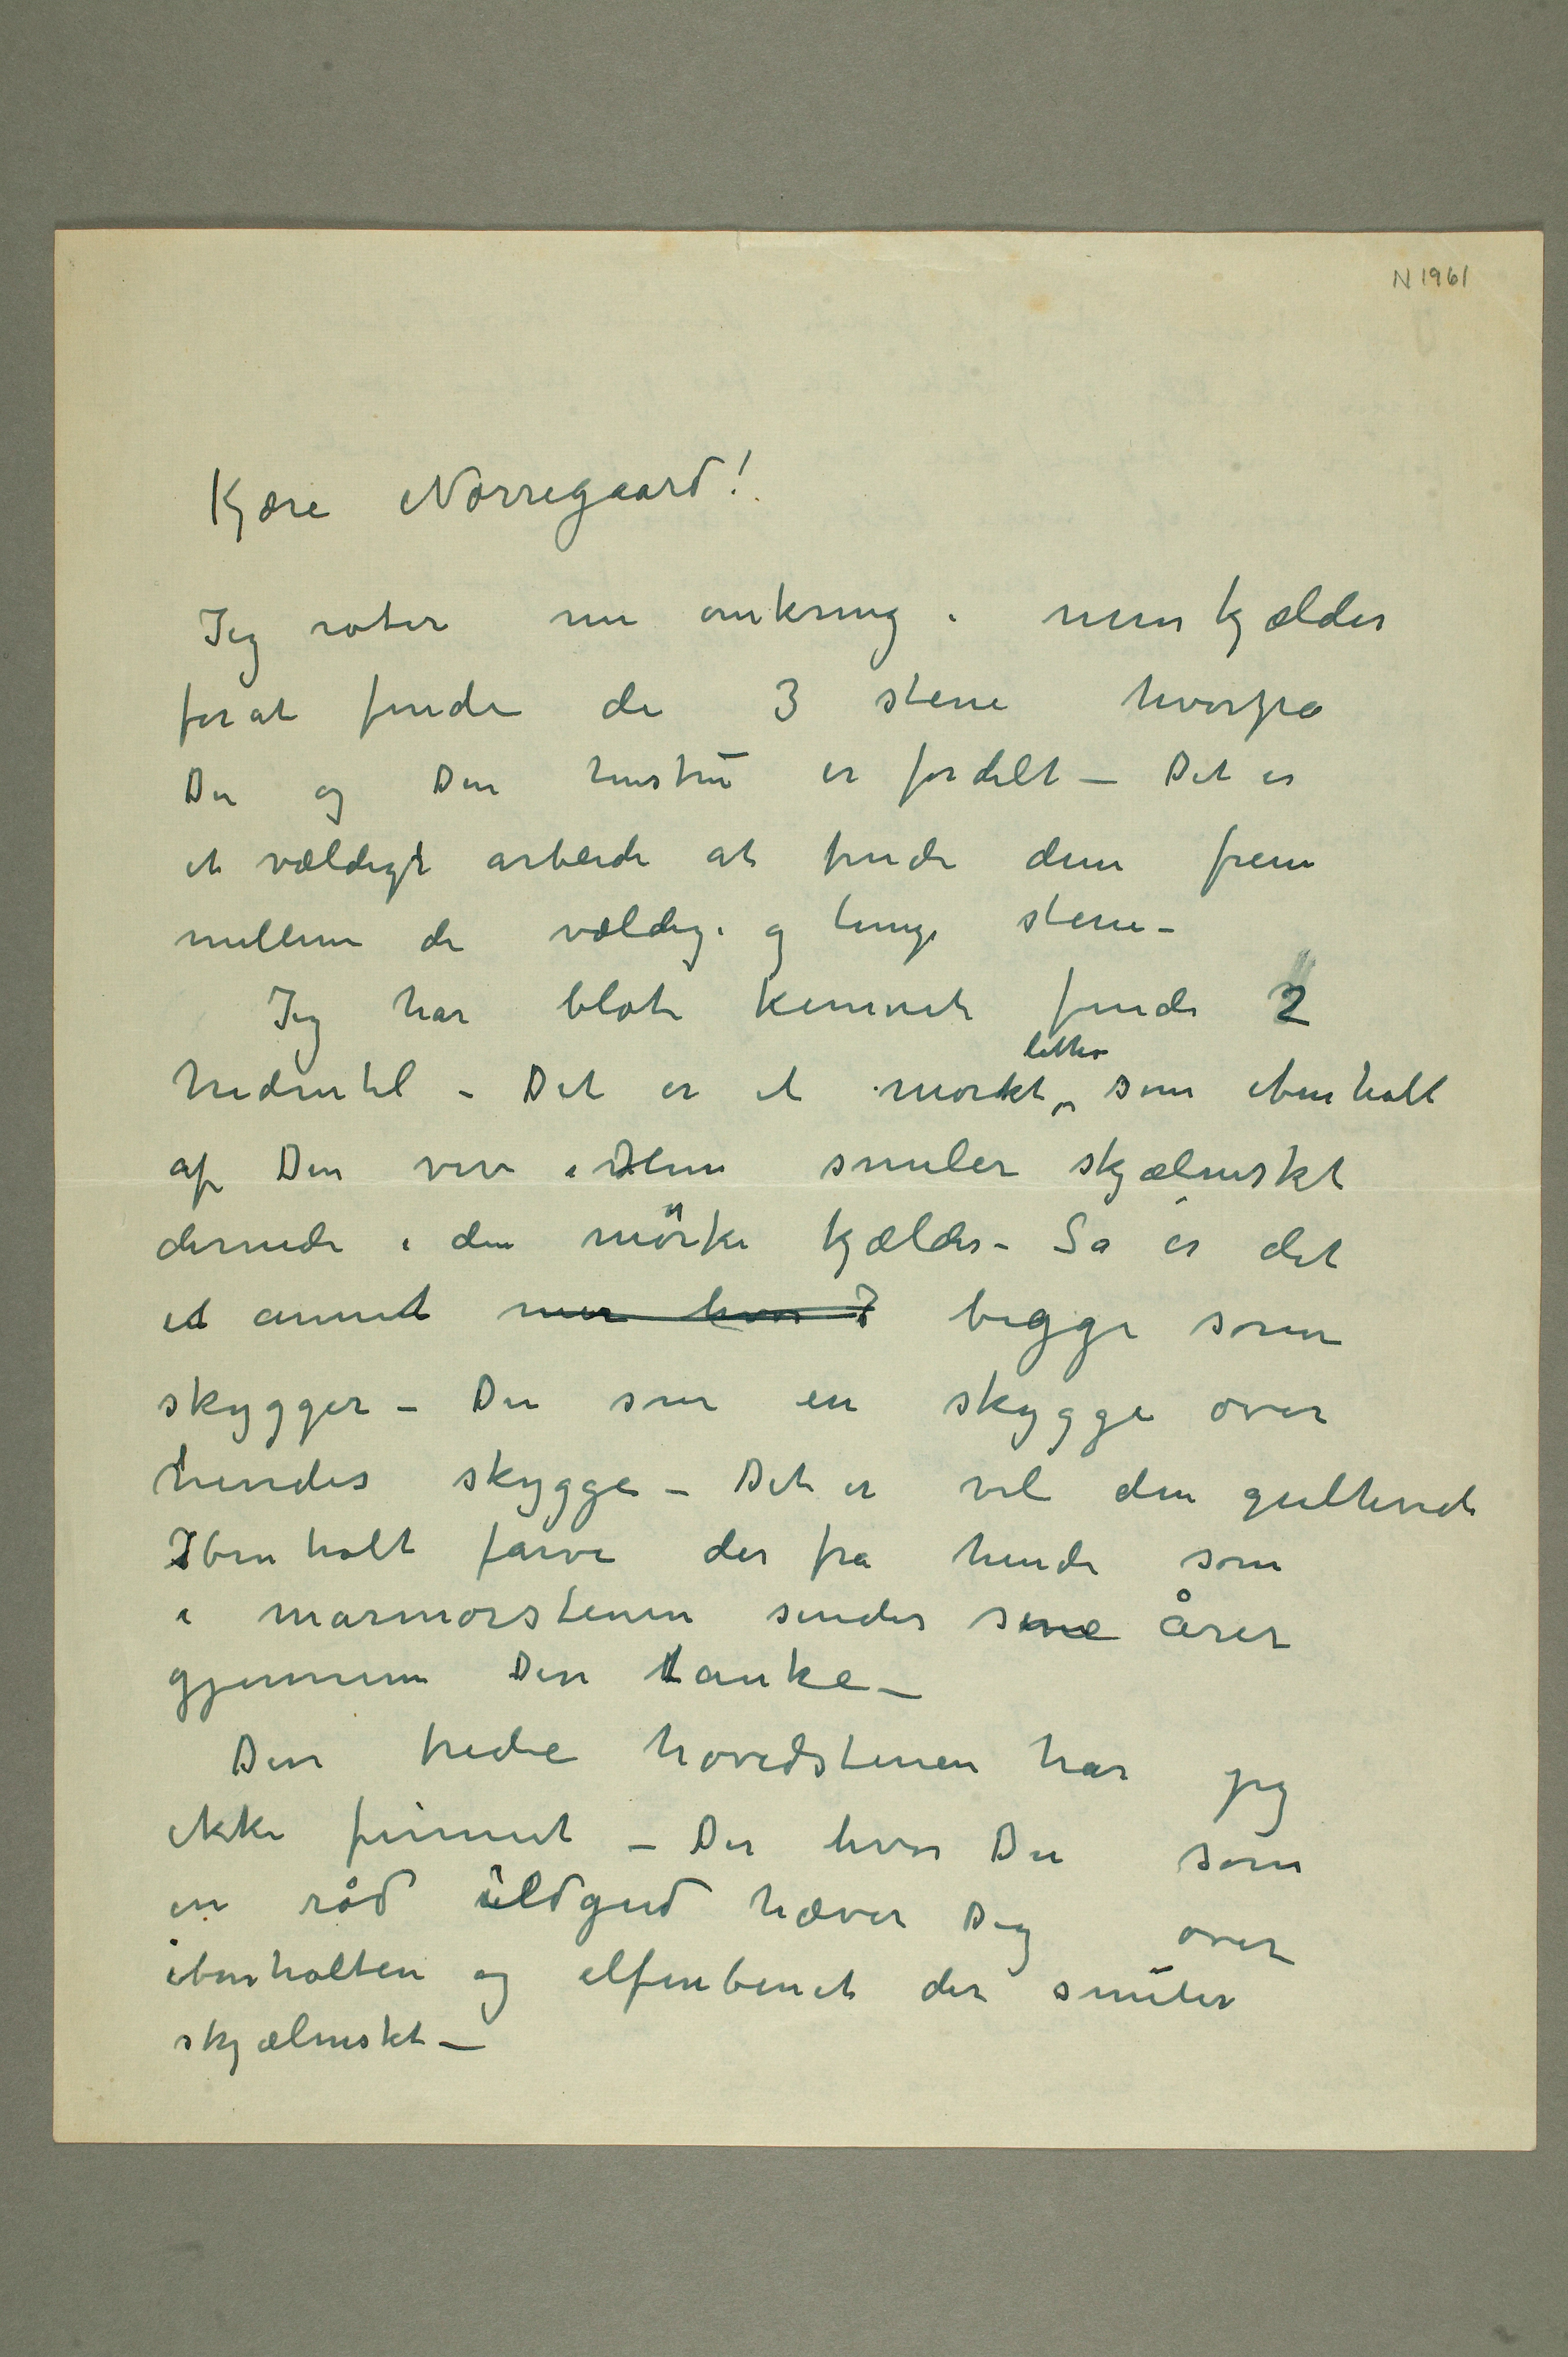 N 1961
Kjære Nørregaard!
Jeg roter nu omkring i min kjælder
forat finde de 3 stene hvorpa
Du og Din hustrū er fordelt – Det er
et vældigt arbeide at finde dem frem
mellem de vældige og tunge stene –
Jeg har blot kunnet finde 2
hedentil – Det er et mørkt som ibenholt
litho
af Din viv i Hun smiler skjælmskt
dernede i den mörke kjælder – Så er det
et annet mer hvor I begge som
skygger – Du som en skygge over
hendes skygge – Det er vel den gulhvide
Ibenholt farve der fra hende som
i marmorstenen sender sine årer
gjennem Din tanke –
Den tredie hovedstenen har jeg
ikke funnet – Der hvor Du som
en rød ildgud hæver Dig over
ibenholten og elfenbenet der smiler
skjælmskt –